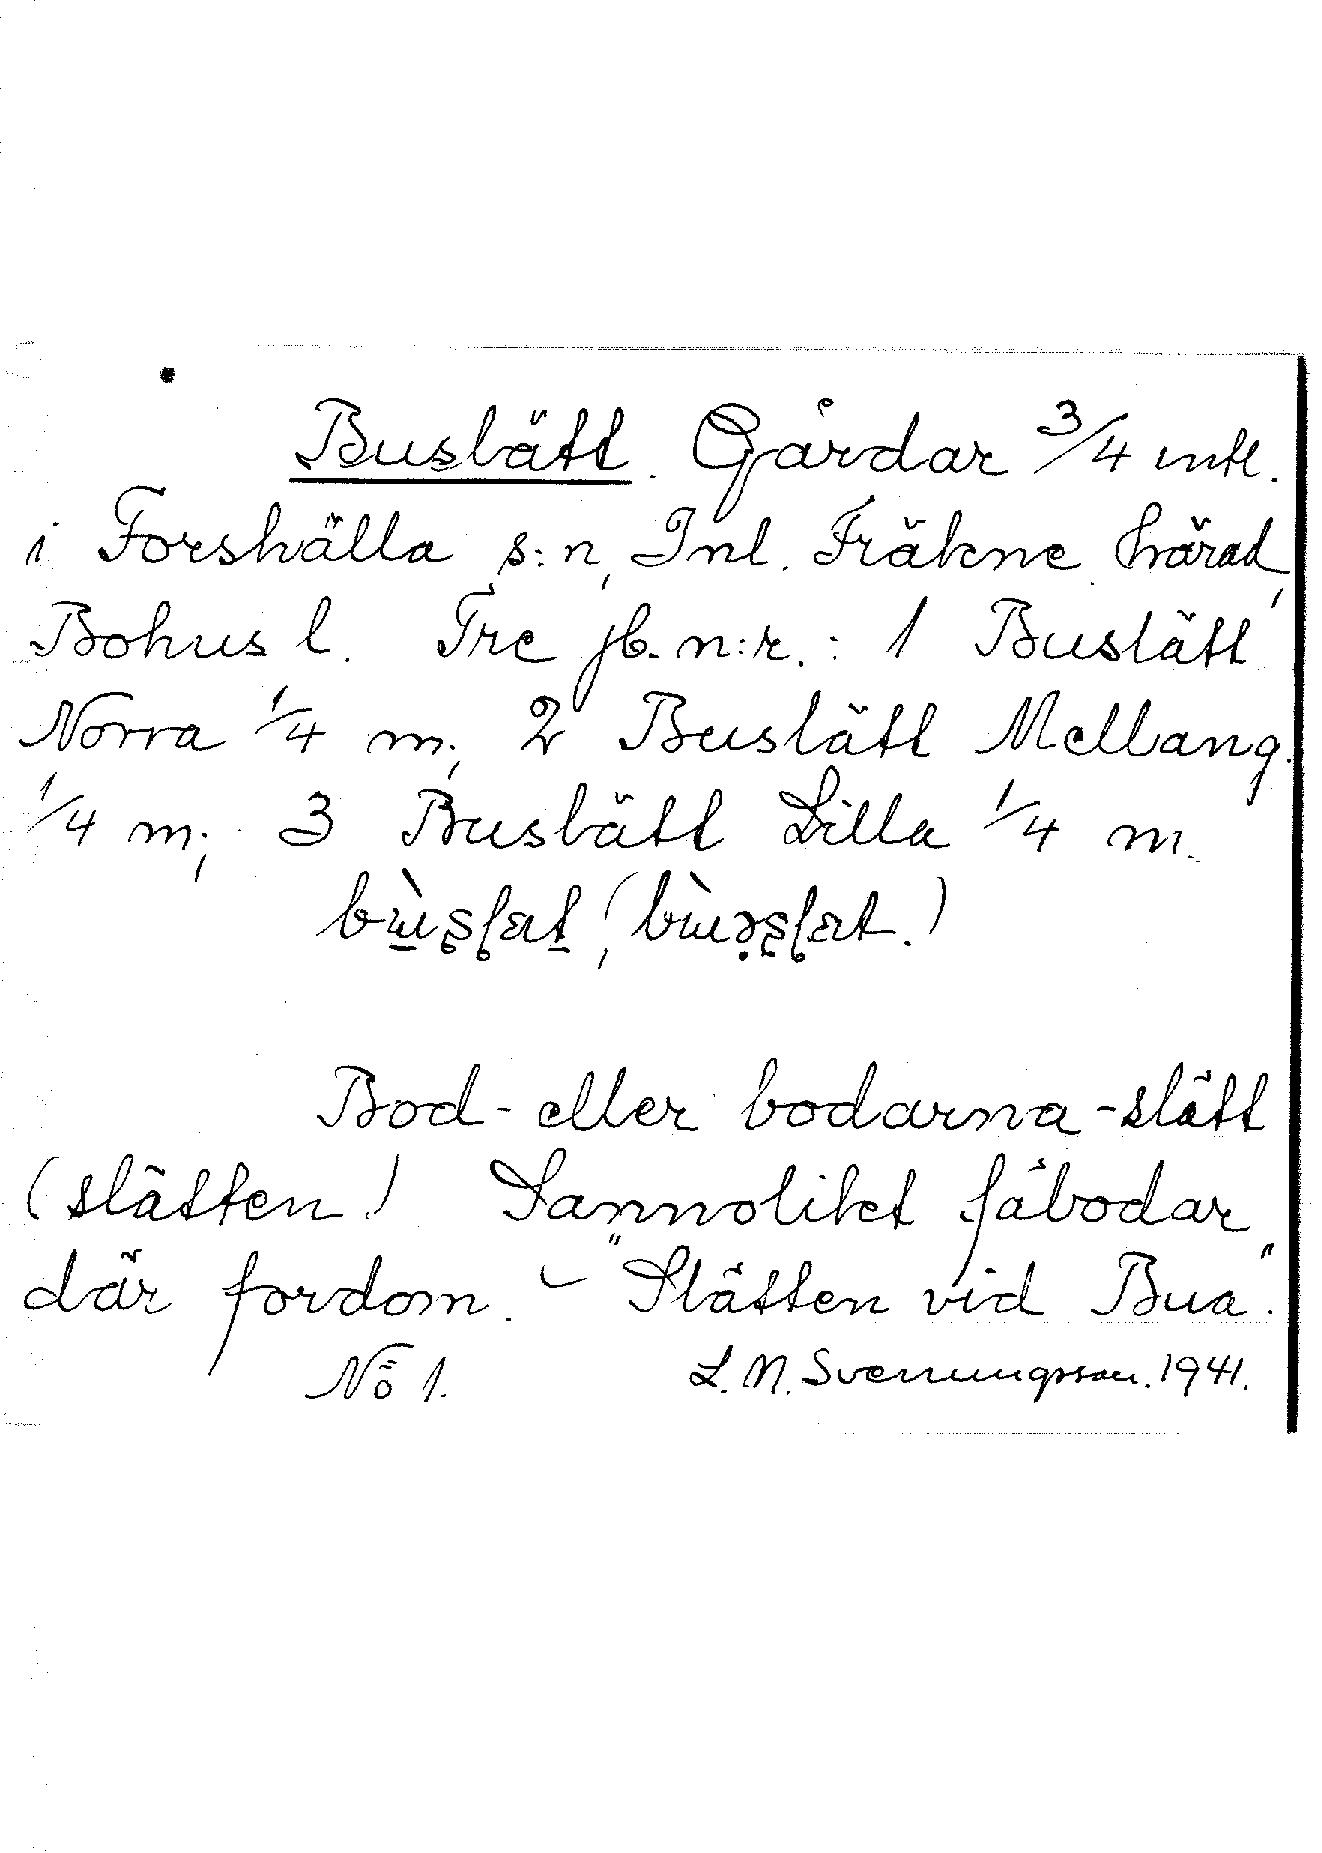 Buslätt. Gårdar 3/4 mtl.
i Forshälla s:n, Inl. Fräkne härad,
Bohus l. Tre jb. n:r.: 1 Buslätt
Norra 1/4 m; 2 Buslätt Mellang.
1/4 m; 3 Buslätt Lilla 1/4 m.
Bod- eller bodarna-slätt
(slätten) Sannolikt fäbodar
där fordom. - "Slätten vid Bua".
No 1. L. N. Svenungsson. 1941.